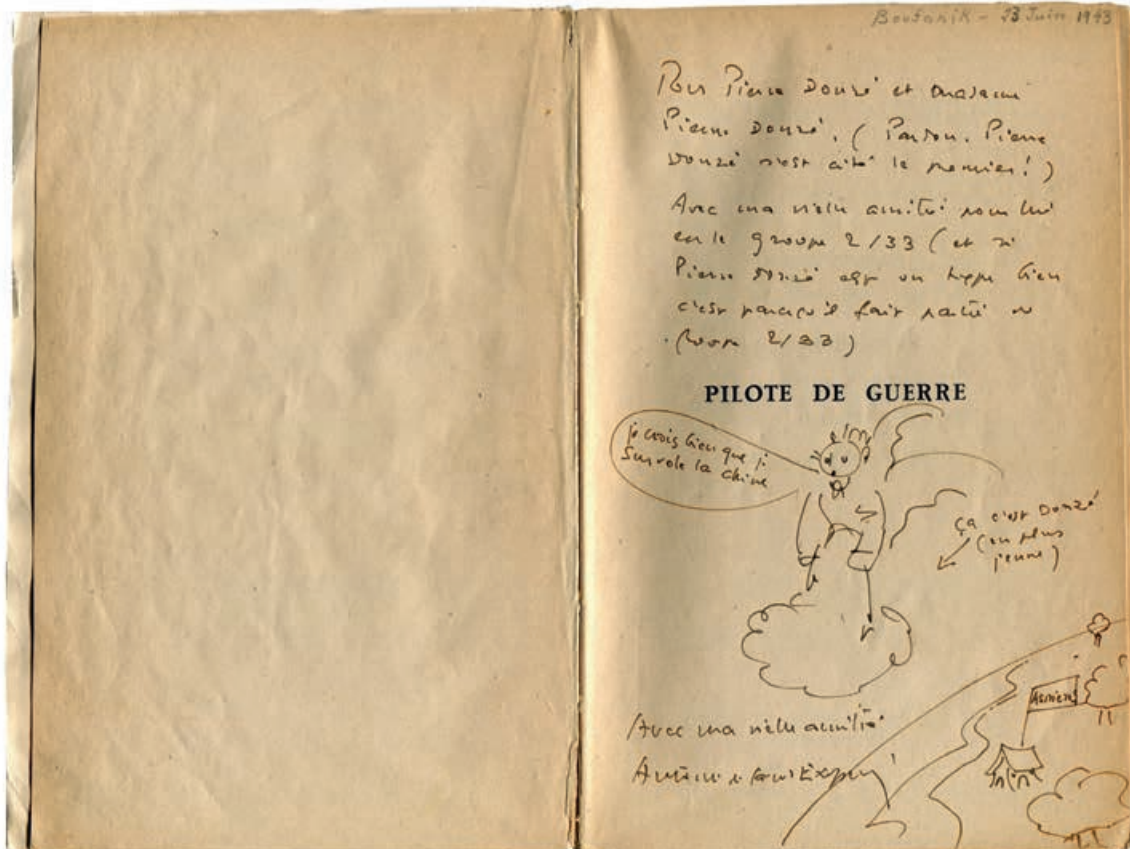 Boufarik - 23 Juin 1943
Pour Pierre Donzé et madame
Pierre Donzé. ( Pardon. Pierre
Donzé n'est cité le premier! )
Avec ma vieille amitié pour lui
et le groupe 2/33 ( et si
Pierre Donzé est un type bien
c'est parcequ'il fait partie du
groupe 2/33 )
PILOTE DE GUERRE
je crois bien que je
survole la chine
ça c'est Donzé
(en plus
jeune)
Asnières
Avec ma vieille amitié
Antoine de Saint Exupéry